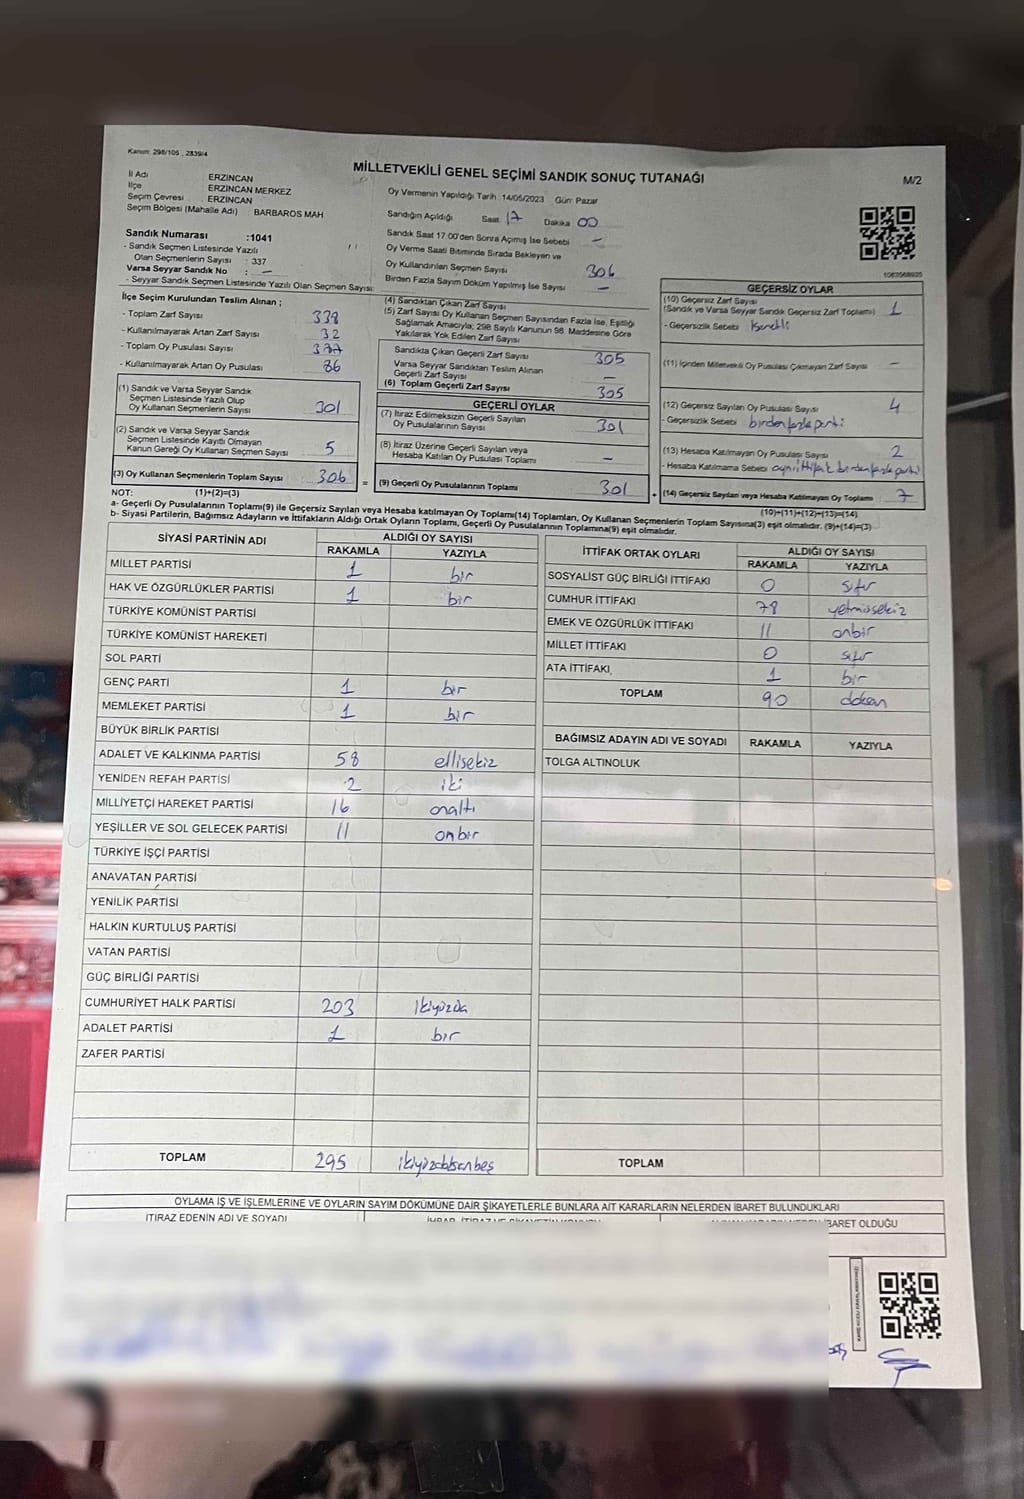 Kanun: 298/105 , 2839/4
MİLLETVEKİLİ GENEL SEÇİMİ SANDIK SONUÇ TUTANAĞI
M/2
İl Adı : ERZİNCAN
İlçe : ERZİNCAN MERKEZ
Seçim Çevresi : ERZİNCAN
Seçim Bölgesi (Mahalle Adı) : BARBAROS MAH.
Sandık Numarası :1041
- Sandık Seçmen Listesinde Yazılı
Olan Seçmenlerin Sayısı : 337
Varsa Seyyar Sandık No : —
- Seyyar Sandık Seçmen Listesinde Yazılı Olan Seçmen Sayısı:
Oy Vermenin Yapıldığı Tarih :14/05/2023 Gün: Pazar
Sandığın Açıldığı Saat: 17 Dakika 00
Sandık Saat 17:00'den Sonra Açmış İse Sebebi —
Oy Verme Saati Bitiminde Sırada Bekleyen ve
Oy Kullandırılan Seçmen Sayısı 306
Birden Fazla Sayım Döküm Yapılmış İse Sayısı —
1063568935
İlçe Seçim Kurulundan Teslim Alınan ;
- Toplam Zarf Sayısı 338
- Kullanılmayarak Artan Zarf Sayısı 32
- Toplam Oy Pusulası Sayısı
- Kullanılmayarak Artan Oy Pusulası 86
(1) Sandık ve Varsa Seyyar Sandık
Seçmen Listesinde Yazılı Olup
Oy Kullanan Seçmenlerin Sayısı 301
(2) Sandık ve Varsa Seyyar Sandık
Seçmen Listesinde Kayıtlı Olmayan
Kanun Gereği Oy Kullanan Seçmen Sayısı 5
(3) Oy Kullanan Seçmenlerin Toplam Sayısı 306 =
(4) Sandıktan Çıkan Zarf Sayısı
(5) Zarf Sayısı Oy Kullanan Seçmen Sayısından Fazla İse, Eşitliği
Sağlamak Amacıyla; 298 Sayılı Kanunun 98. Maddesine Göre
Yakılarak Yok Edilen Zarf Sayısı
Sandıkta Çıkan Geçerli Zarf Sayısı 305
Varsa Seyyar Sandıktan Teslim Alınan
Geçerli Zarf Sayısı —
(6) Toplam Geçerli Zarf Sayısı 305
GEÇERLİ OYLAR
(7) İtiraz Edilmeksizin Geçerli Sayılan
Oy Pusulalarının Sayısı 301
(8) İtiraz Üzerine Geçerli Sayılan veya
Hesaba Katılan Oy Pusulası Toplamı —
(9) Geçerli Oy Pusulalarının Toplamı 301 +
GEÇERSİZ OYLAR
(10) Geçersiz Zarf Sayısı
(Sandık ve Varsa Seyyar Sandık Geçersiz Zarf Toplamı) 1
- Geçersizlik Sebebi İşaretli
(11) İçinden Milletvekili Oy Pusulası Çıkmayan Zarf Sayısı —
(12) Geçersiz Sayılan Oy Pusulası Sayısı 4
- Geçersizlik Sebebi birden fazla parti
(13) Hesaba Katılmayan Oy Pusulası Sayısı 2
- Hesaba Katılmama Sebebi aynı ittifak birden fazla parti
(14) Geçersiz Sayılan veya Hesaba Katılmayan Oy Toplamı : 7
NOT: (1)+(2)=(3)
(10)+(11)+(12)+(13)=(14)
a- Geçerli Oy Pusulalarının Toplamı(9) ile Geçersiz Sayılan veya Hesaba katılmayan Oy Toplamı(14) Toplamları, Oy Kullanan Seçmenlerin Toplam Sayısına(3) eşit olmalıdır. (9)+(14)=(3)
b- Siyasi Partilerin, Bağımsız Adayların ve İttifakların Aldığı Ortak Oyların Toplamı, Geçerli Oy Pusulalarının Toplamına(9) eşit olmalıdır.
SİYASİ PARTİNİN ADI ALDIĞI OY SAYISI
RAKAMLA YAZIYLA
MİLLET PARTİSİ 1 bir
HAK VE ÖZGÜRLÜKLER PARTİSİ 1 bir
TÜRKİYE KOMÜNİST PARTİSİ
TÜRKİYE KOMÜNİST HAREKETİ
SOL PARTİ
GENÇ PARTİ 1 bir
MEMLEKET PARTİSİ 1 bir
BÜYÜK BİRLİK PARTİSİ
ADALET VE KALKINMA PARTİSİ 58 ellisekiz
YENİDEN REFAH PARTİSİ 2 iki
MİLLİYETÇİ HAREKET PARTİSİ 16 onaltı
YEŞİLLER VE SOL GELECEK PARTİSİ 11 onbir
TÜRKİYE İŞÇİ PARTİSİ
ANAVATAN PARTİSİ
YENİLİK PARTİSİ
HALKIN KURTULUŞ PARTİSİ
VATAN PARTİSİ
GÜÇ BİRLİĞİ PARTİSİ
CUMHURİYET HALK PARTİSİ 203 ikiyüzüç
ADALET PARTİSİ 1 bir
ZAFER PARTİSİ
TOPLAM 295 ikiyüzdoksanbeş
İTTİFAK ORTAK OYLARI ALDIĞI OY SAYISI
RAKAMLA YAZIYLA
SOSYALİST GÜÇ BİRLİĞİ İTTİFAKI 0 sıfır
CUMHUR İTTİFAKI 78 yetmişsekiz
EMEK VE ÖZGÜRLÜK İTTİFAKI 11 onbir
MİLLET İTTİFAKI 0 sıfır
ATA İTTİFAKI 1 bir
TOPLAM 90 doksan
BAĞIMSIZ ADAYIN ADI VE SOYADI RAKAMLA YAZIYLA
TOLGA ALTINOLUK
TOPLAM
OYLAMA İŞ VE İŞLEMLERİNE VE OYLARIN SAYIM DÖKÜMÜNE DAİR ŞİKAYETLERLE BUNLARA AİT KARARLARIN NELERDEN İBARET BULUNDUKLARI
İTİRAZ EDENİN ADI VE SOYADI
İBARET OLDUĞU